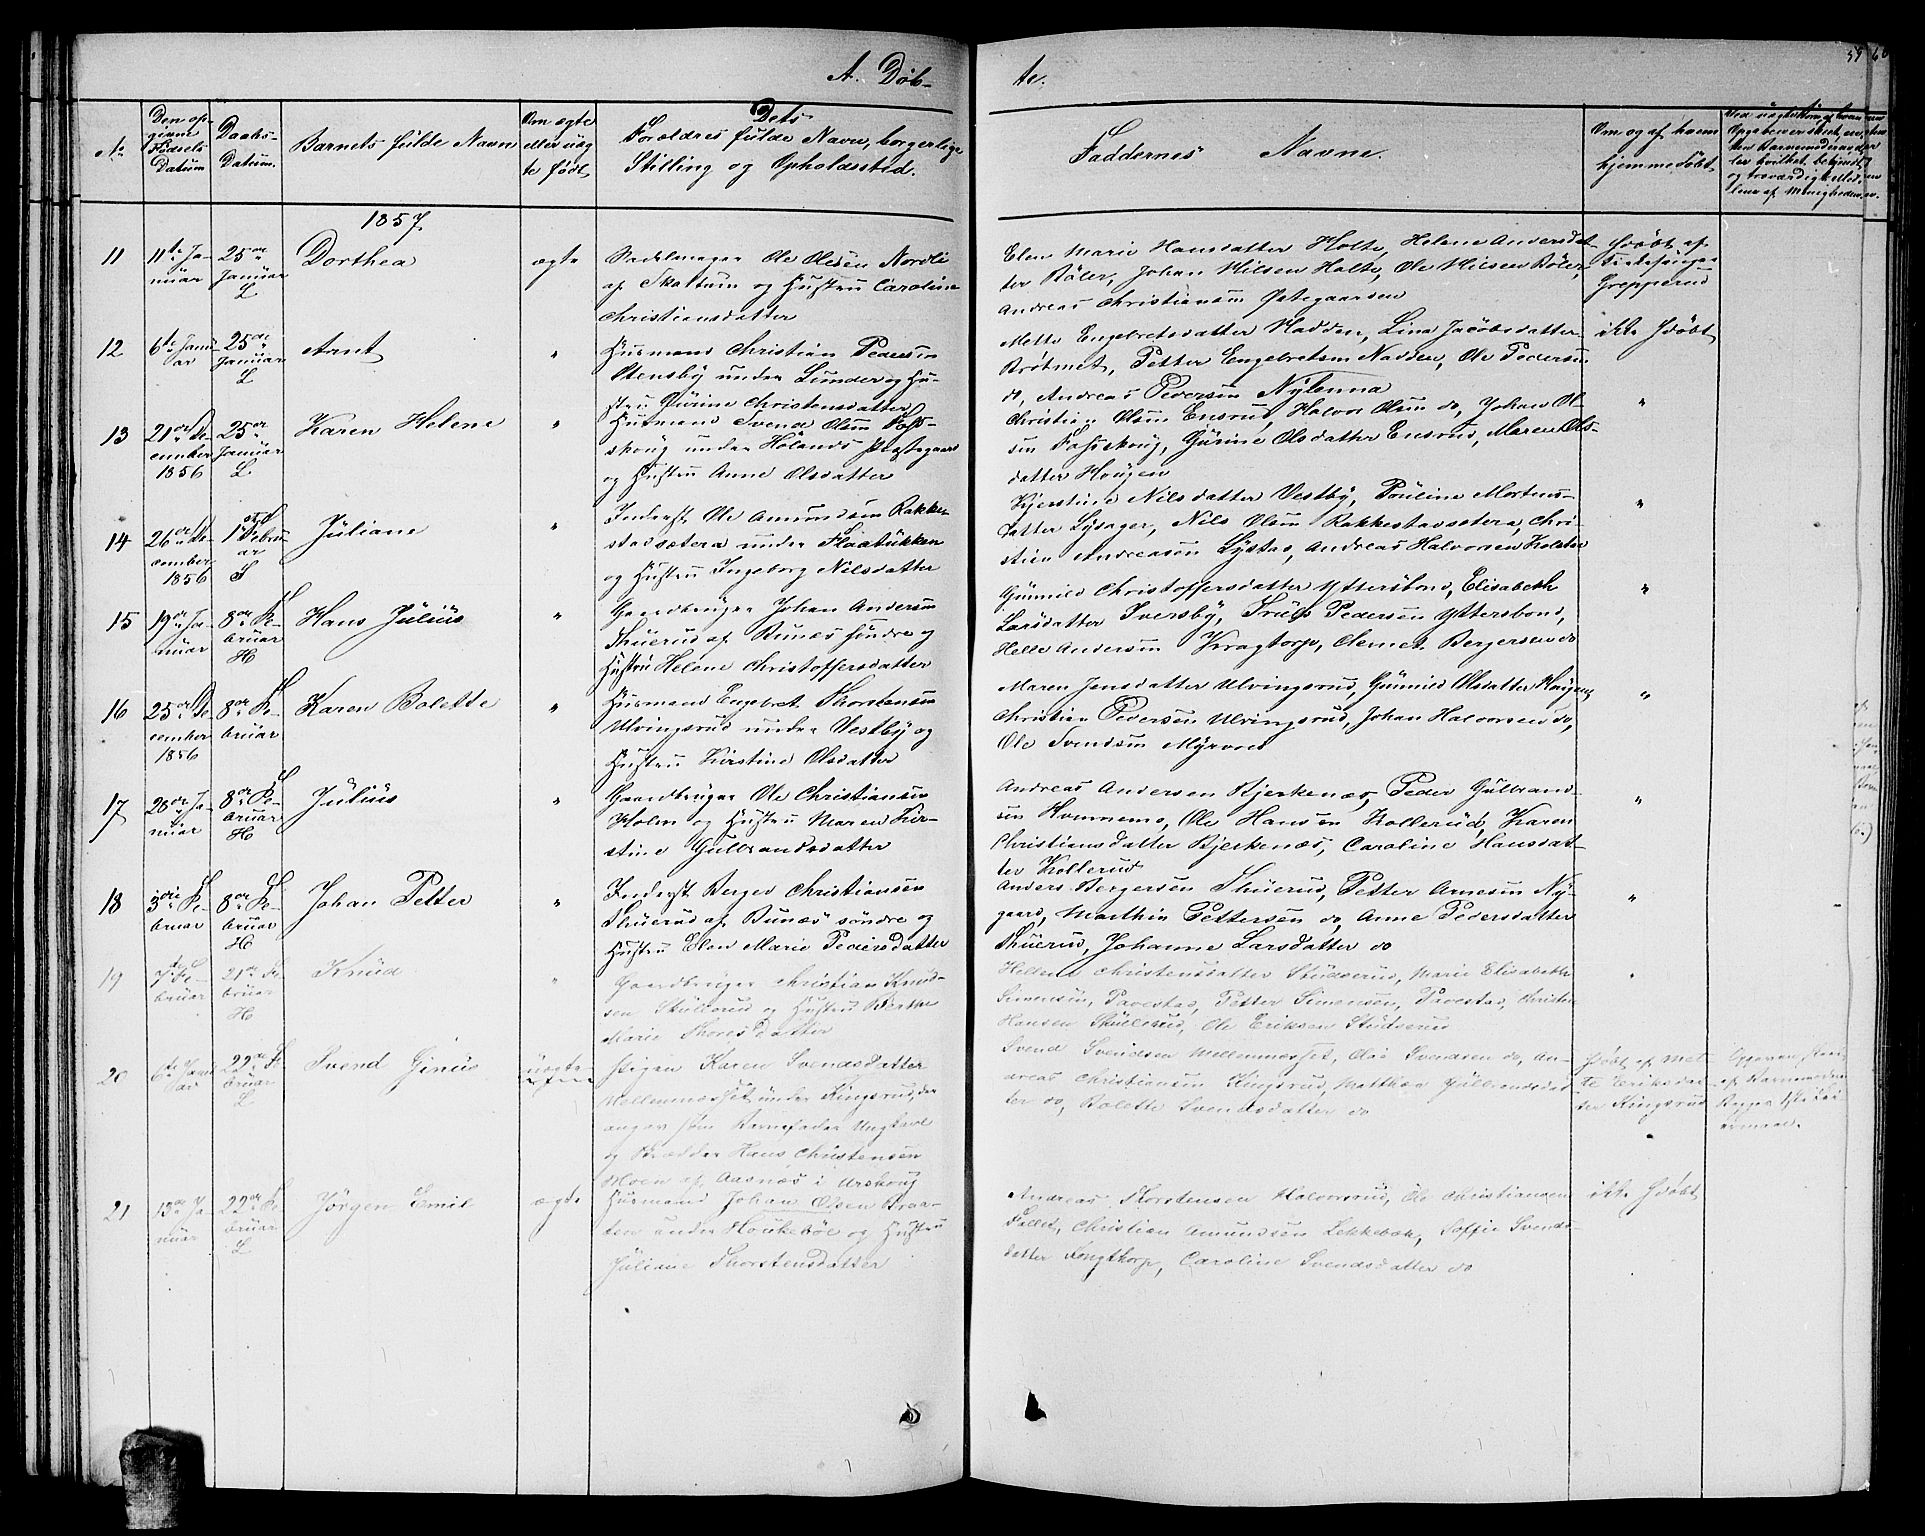 A. Døb-
te.
59
No
Den op-
givne
Fødsels
Datum
Daabs-
Datum.
Barnets fulde Navn
Om ægte
eller uæg
te født
Dets
Forældres fulde Navn, borgerlige
Stilling og Opholdssted.
Faddernes Navne.
Om og af hvem
hjemmedøbt
1857
11
11te Ja-
nuar
25de
Januar
L
Dorthea
ægte
Sadelmager Ole Olesen Nordli
af Skattum og Hustru Caroline
Christiansdatter
Elen Marie Hansdatter Holte, Helene Andersdat-
ter Bøler, Johan Nilsen Holte, Ole Nilsen Bøler,
Andreas Christiansen Østegaarsen
hdøbt af
Grepperud
12
6te Janu
ar
25de
Januar
L
Arnt
"
Husmand Christian Pedersen
Stensby under Lunder og Hu-
stru Gurine Christensdatter
Mette Engebretsdatter Nadden, Lina Jacobsdatter
Brøtmet, Petter Engebretsen Nadden, Ole Pedersen
do, Andreas Pedersen Nylenna
ikke hdøbt
13
21de De
cember
1856
25de
Januar
L
Karen Helene
"
Husmand Svend Olsen Foss-
skoug under Hølands Præstegaard
og Hustru Anne Olsdatter
Christian Olsen Ensrud, Halvor Olsen do, Johan Ol-
sen Fossskoug, Gurine Olsdatter Ensrud, Maren Ols-
datter Haugen
"
14
26de De
cember
1856
1ste Febru
ar
S
Juliane
"
Inderst Ole Amundsen Rakke
stadsætera under Flaatukken
og Hustru Ingeborg Nilsdatter
Kjerstine Nilsdatter Vestby, Pouline Mortens-
datter Lysager, Nils Olsen Rakkestadsætera, Chri-
stian Andreasen Lystad, Andreas Halvorsen Kolstad
"
15
19de Ja-
nuar
8de Fe-
bruar
H
Hans Julius
"
Gaardbruger Johan Andersen
Thuerud af Bunæs søndre og
Hustru Helene Christoffersdatter
Gunild Christoffersdatter Yttersbond, Elisabeth
Larsdatter Iversby, Truls Pedersen Yttersbond,
Helle Andersen Kragtorp, Clemet Bergersen do
"
16
25de De
cember
1856
8de Fe-
bruar
Karen Bolette
"
Husmand Engebret Thorstensen
Ulvingsrud under Vestby og
Hustru Kirstine Olsdatter
Maren Jensdatter Ulvingsrud, Gunild Olsdatter Haugen,
Christian Pedersen Ulvingsrud, Johan Halvorsen do,
Ole Svendsen Myrvold
"
17
28de Ja-
nuar
8de Fe-
bruar
H
Julius
"
Gaardbruger Ole Christiansen
Holm og Hustru Maren Kir-
stine Gulbrandsdatter
Andreas Andersen Bjerkenæs, Peder Gulbrand-
sen Ole Hansen Kollerud, Karen
Christiansdatter Bjerkenæs, Caroline Hansdat-
ter Kollerud
"
18
3die Fe-
bruar
8de Fe-
bruar
H
Johan Petter
"
Inderst Berger Christiansen
Thuerud af Bunæs søndre og
Hustru Elen Marie Pedersdatter
Anders Bergersen Thuerud, Petter Arnesen Ny-
gaard, Marthin Pettersen do, Anne Pedersdatter
Thuerud, Johanne Larsdatter do
"
19
7de Fe-
bruar
21de Fe-
bruar
H
Knud
"
Gaardbruger Christian Knud-
sen Skullerud og Hustru Berthe
Marie Thoresdatter
Hellena Christensdatter Studserud, Marie Elisabeth
Simensen, Tavestad, Petter Simensen, Tavestad, Christen
Hansen Skullerud, Ole Eriksen Studserud
"
20
6te Janu
ar
22de Fe
bruar
L
Svend Ginius
uægte
Pigen Karen Svendsdatter
Mellemnesset under Kingsrud, der
angav som Barnefader Ungkarl
og Skrædder Hans Christensen
Moen af Aasnæs i Urskoug
Svend Svendsen Mellemnesset, Ole Svendsen do, An-
dreas Christiansen Kingsrud, Matthea Gulbrandsdat
ter do, Bolette Svendsdatter do
hdøbt af Met-
te Eriksdat-
ter Kingsrud
21
13de Ja-
nuar
22de Fe
bruar
L
Jørgen Emil
ægte
Husmand Johan Olsen Braa-
ten under Houkebøl og Hustru
Juliane Thorstensdatter
Andreas Thorstensen Halvorsrud, Ole Christiansen
Fallet, Christian Amundsen Lekkebæk, Soffie Svends-
datter Kragthorp, Caroline Svendsdatter do
ikke hdøbt